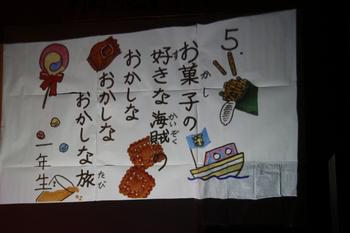 5.
お菓子の
かし
好きな海賊の
す
かいぞく
おかしな
おかしな
おかしな旅
たび
一年生